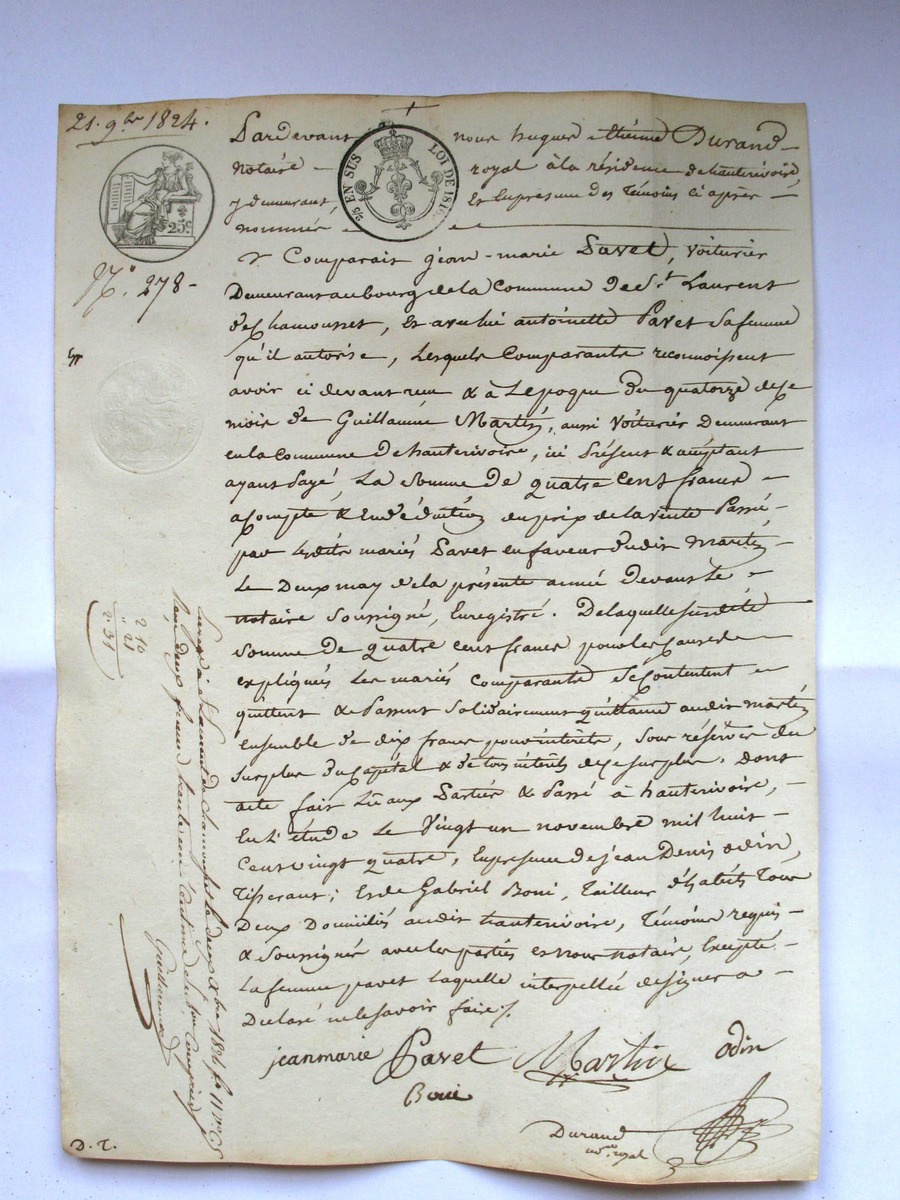 21. 9bre 1824.
Pardevant nous hugues etienne Durand
notaire royal à la résidence de hauterivoire,
y demeurant, Et En presence des Témoins ci après
nommés
2/5 EN SUS LOI DE 1816.
25c.
N°. 278
Comparait jean-marie Pavet, Voiturier
Demeurant au bourg de la Commune de St. Laurent
de Chamousset, Et avec lui antoinette Pavet sa femme
qu'il autorise, Lesquels Comparants reconnoissent
avoir ci devant reçu & à Lepoque du quatorze de ce
mois de Guillaume Martin, aussi Voiturier Demeurant
en la Commune de hauterivoire, ici Présent & acceptant
ayant Payé, La Somme De quatre Cent francs
acompte & En déduction du prix de la vente Passée
par lesdits mariés Pavet en faveur dudit martin
Le Deux may de la présente année devant Le
notaire Soussigné, Enregistré. De laquelle susdite
Somme De quatre cent francs pour les causes
expliqués Les mariés Comparants Se Contentent
quittent & Passent Solidairement quittance audit martin
ensemble de dix francs pour intérêts, Sous réserve du
Surplus du Capital & de tous intérêts de ce surplus. Dont
acte fait Lu aux Parties & Passé à hauterivoire,
En L'étude Le Vingt un novembre mil huit
Cent vingt quatre, En presence de jean Denis odin,
Tisserant; Et de Gabriel Boni, Tailleur d'habits Tous
Deux Domiciliés audit hauterivoire, Témoins requis
& Soussignés avec les parties et nous notaire, Excepté
La femme pavet laquelle interpellée de signer a
Declaré ne le savoir faire/.
jeanmarie Pavet Martin odin
Boni
Durand
not. royal
2 10
21
2 31
à St Laurent de Chamousset le deux Xbre 1824 fo 11
Reçu deux francs trente un centimes
Guillermet
D. T.